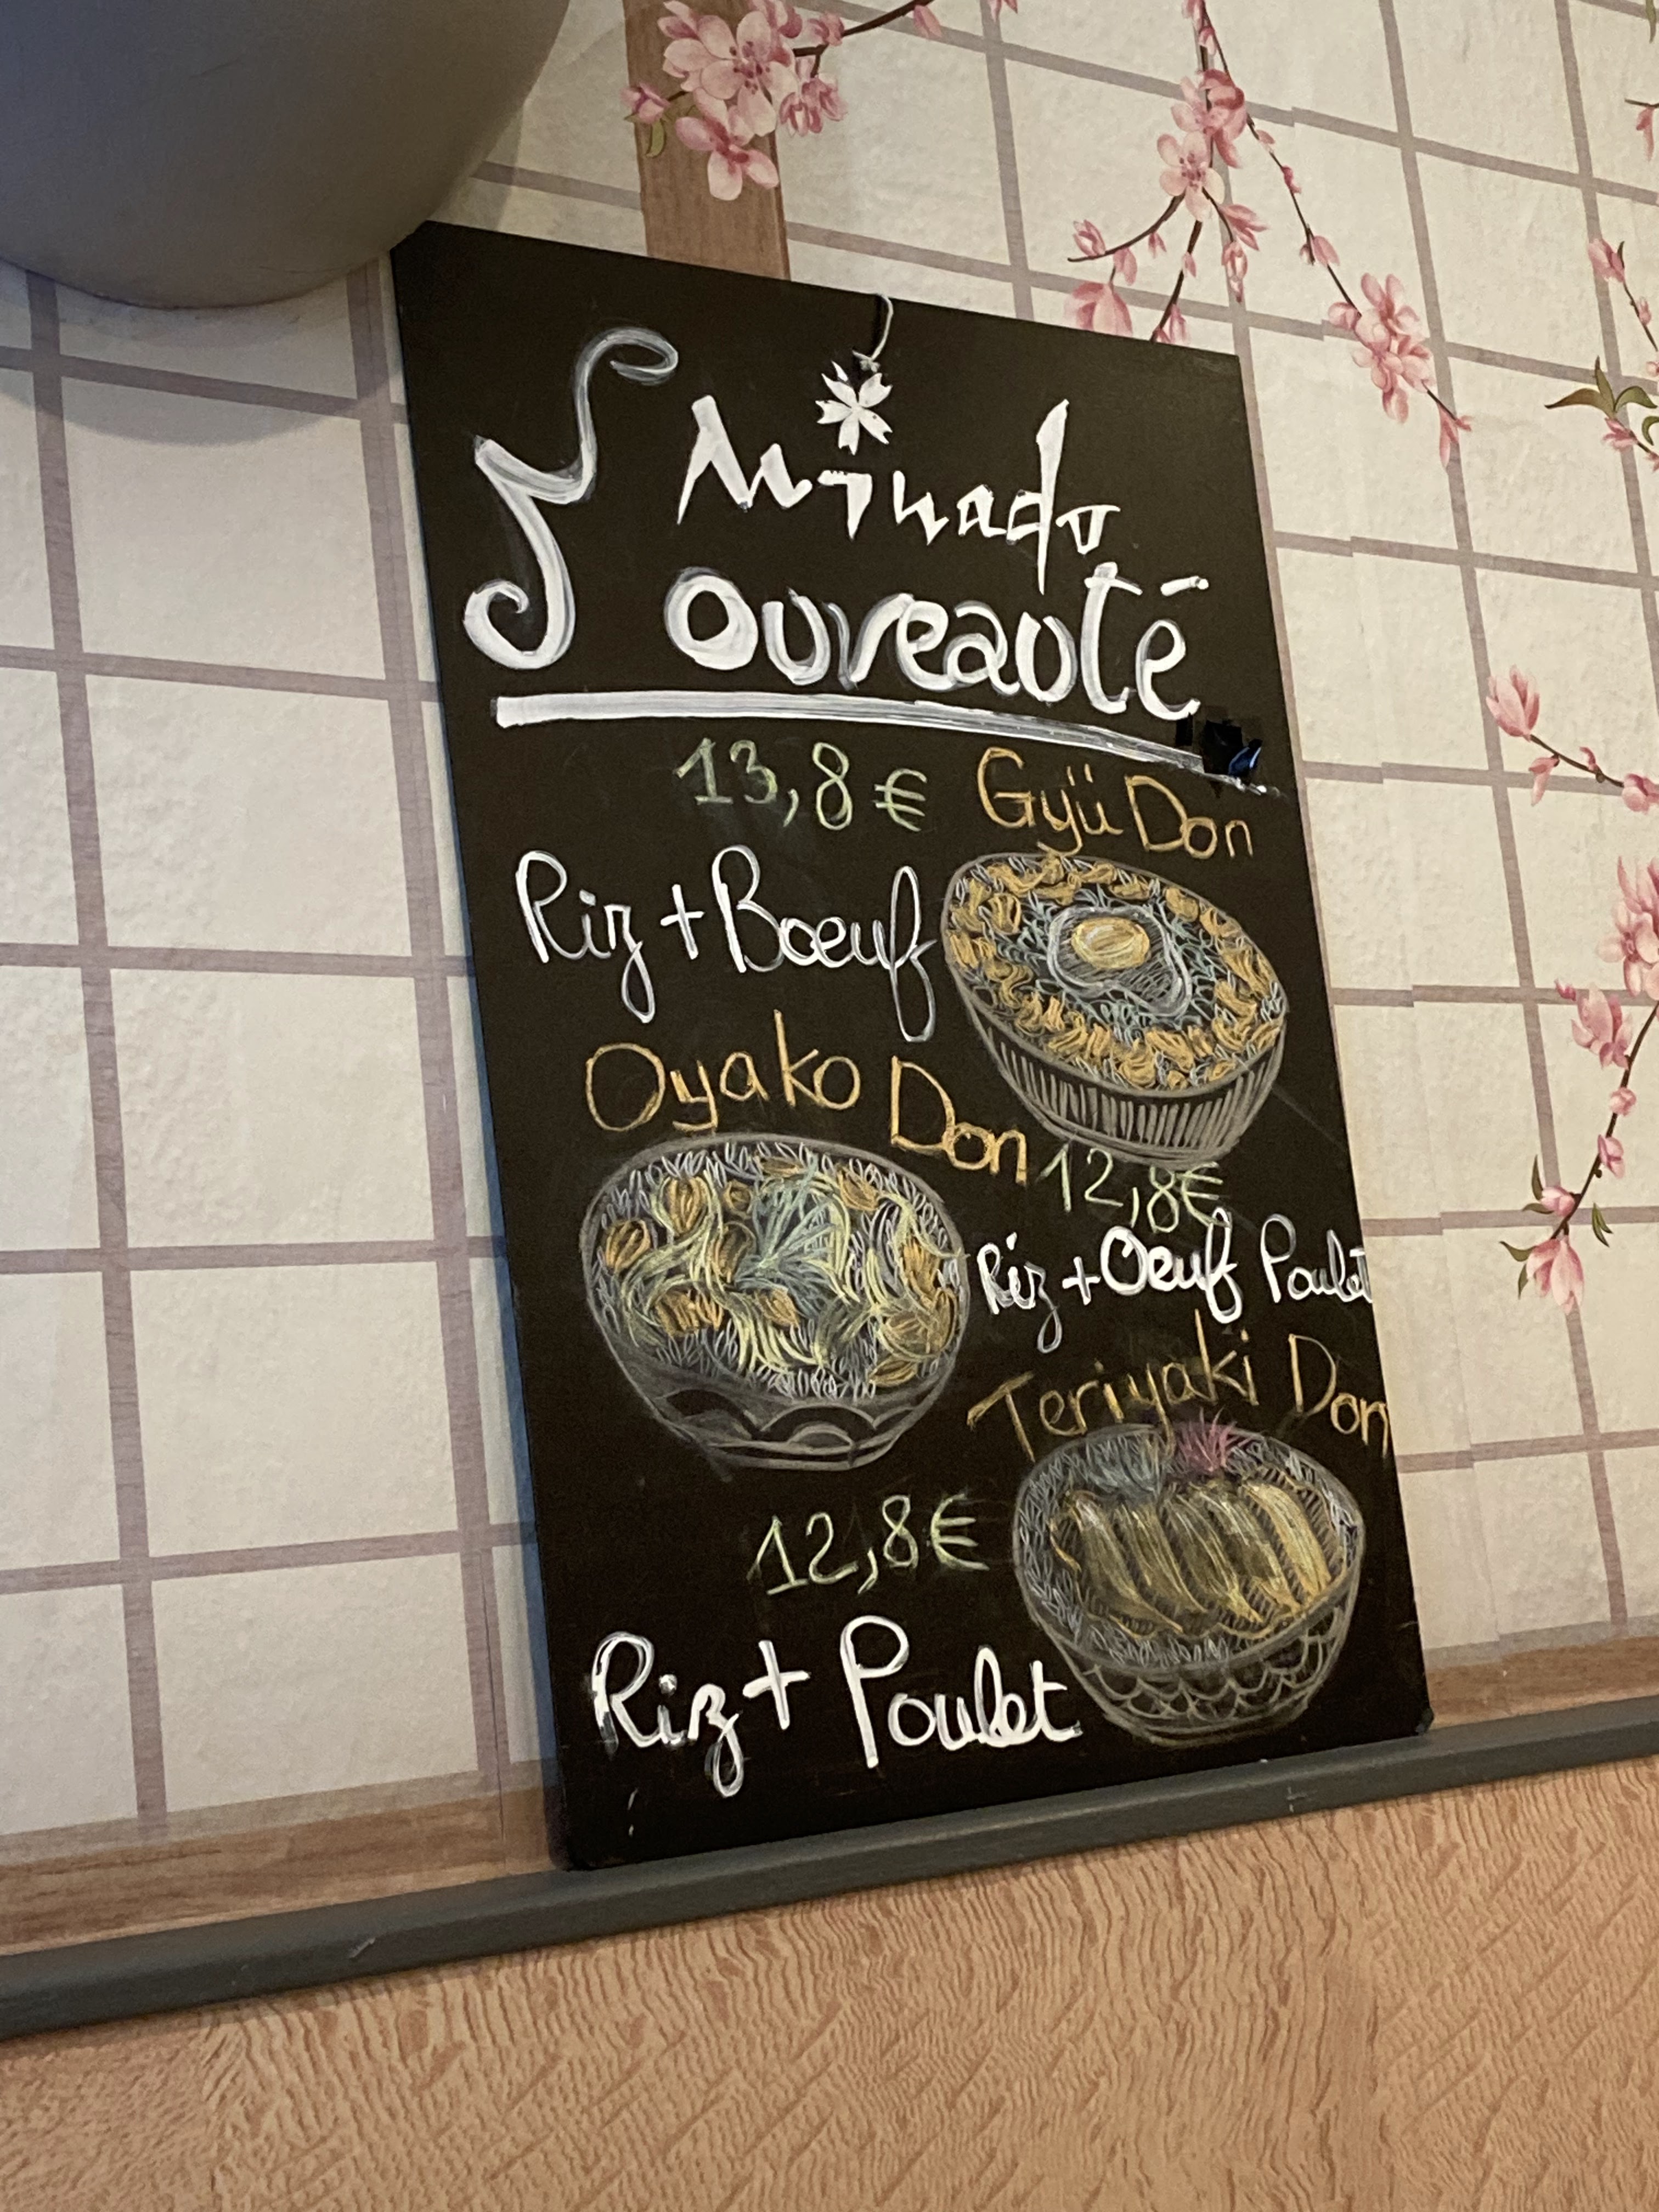 Minado
Nouveauté
13,8€ Gyü Don
Riz + Boeuf
Oyako Don
12,8€
Riz + Oeuf Poulet
Teriyaki Don
12,8€
Riz + Poulet